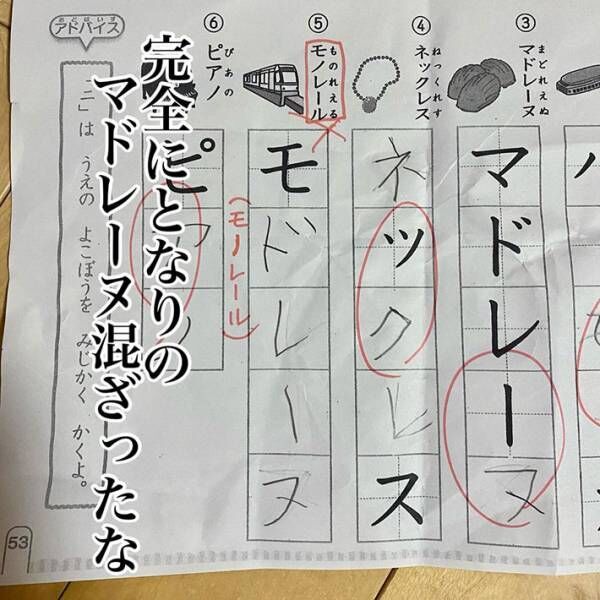 ③
まどれえぬ
マドレーヌ
マドレーヌ
④
ねっくれす
ネックレス
ネックレス
⑤
ものれえる
モノレール
モドレーヌ
(モノレール)
⑥
ぴあの
ピアノ
ピアノ
あどばいす
アドバイス
ニ」は うえの よこぼうを みじかく かくよ。
53
完全にとなりの
マドレーヌ混ざったな